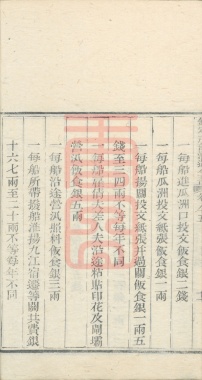 一每船進瓜洲口投文飯食銀二錢
一每船瓜洲閘投文紙張飯食銀一兩
一每船揚關投文紙張并過關飯食銀一兩五
錢至三四兩不等每年不同
一每船雇備大差人夫沿途粘貼印花及閘壩
營汛飯食銀五兩
一每船沿途營汛撥料飯食銀三兩
一每船所帶撥船淮揚九江宿遷等關共費銀
十六七兩至二十兩不等每年不同